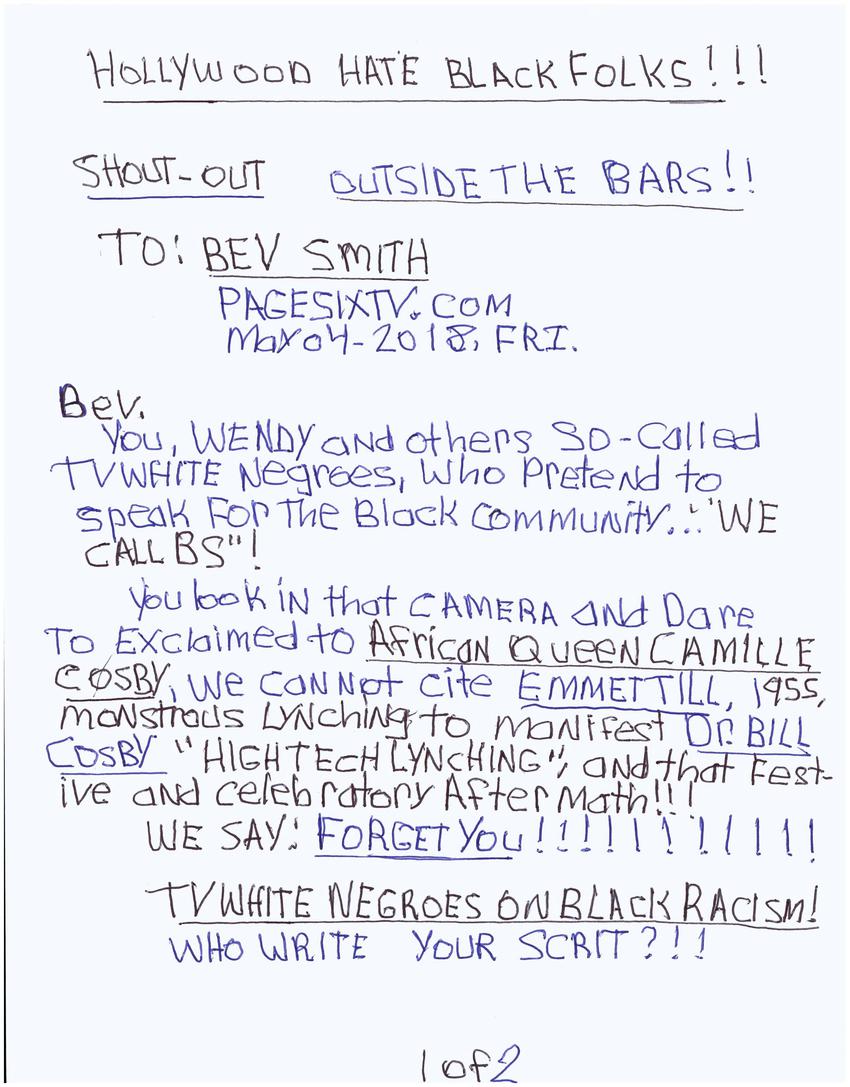 HOLLYWOOD HATE BLACK FOLKS!!!
SHOUT-OUT OUTSIDE THE BARS!!
TO: BEV SMITH
PAGESIXTV.COM
May 04-2018, FRI.
Bev.
You, WENDY and others SO-Called
TV WHITE Negroes, Who Pretend to
speak For The Black Community... "WE
CALL BS"!
You look IN that CAMERA and Dare
To Exclaimed to African QUEEN CAMILLE
COSBY, We CANNOt cite EMMET TILL, 1955,
monstrous LYNching to manifest Dr. BILL
COSBY "HIGH TECH LYNCHING", and that Fest-
ive and celebratory After Math!!!
WE SAY: FORGET You!!!!!!!!!!!
TV WHITE NEGROES ON BLACK RACISM!
WHO WRITE YOUR SCRIT?!!
1 of 2